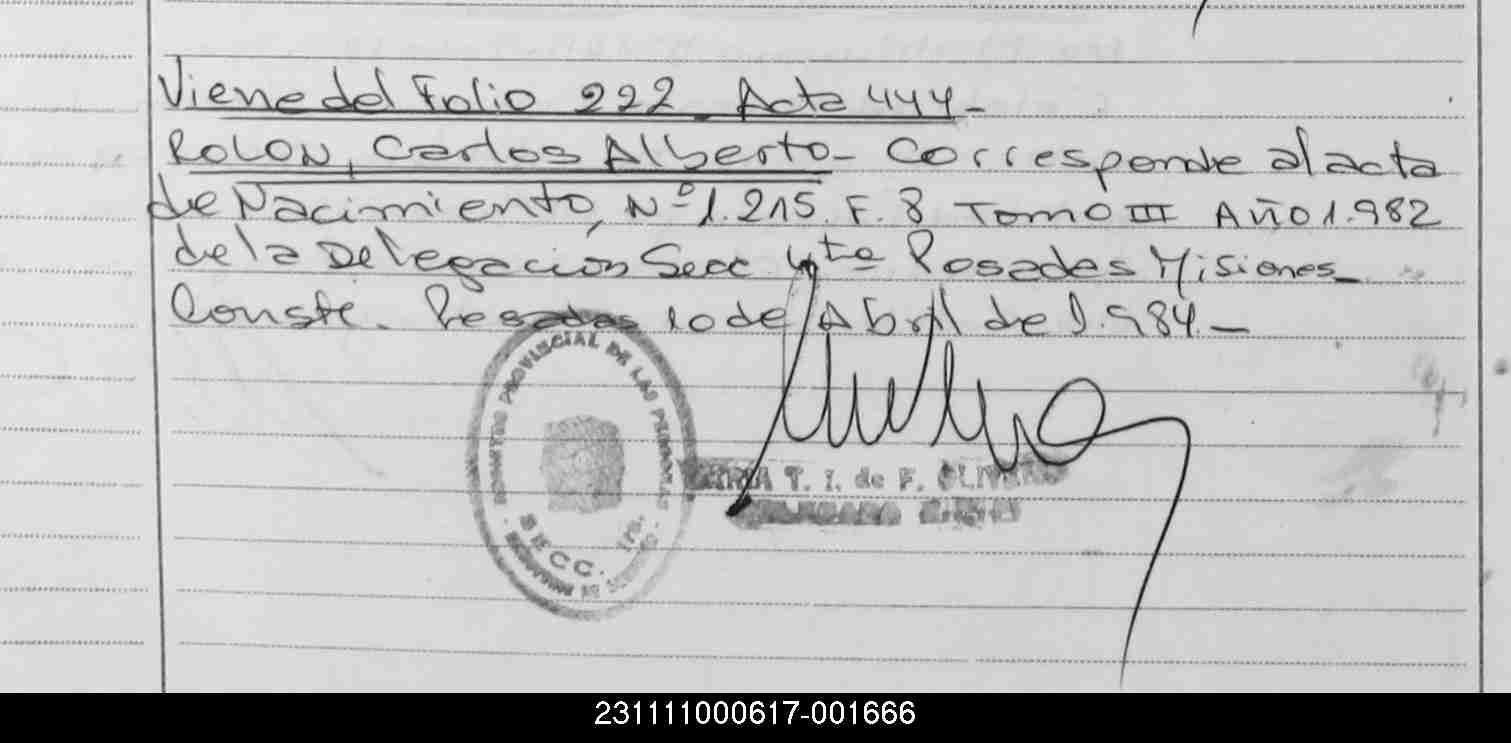 Viene del Folio 222 Acta 444-
ROLON, Carlos Alberto- Corresponde al acta
de Nacimiento, Nº 1.215. F. 8 Tomo III Año 1.982
de la Delegación Secc 4ta Posadas Misiones-
Conste. Posadas 10 de Abril de 1.984-
PROVINCIAL DE LAS PERSONAS
SECC. 1ra.
T. I. de F. OLIVERA
231111000617-001666